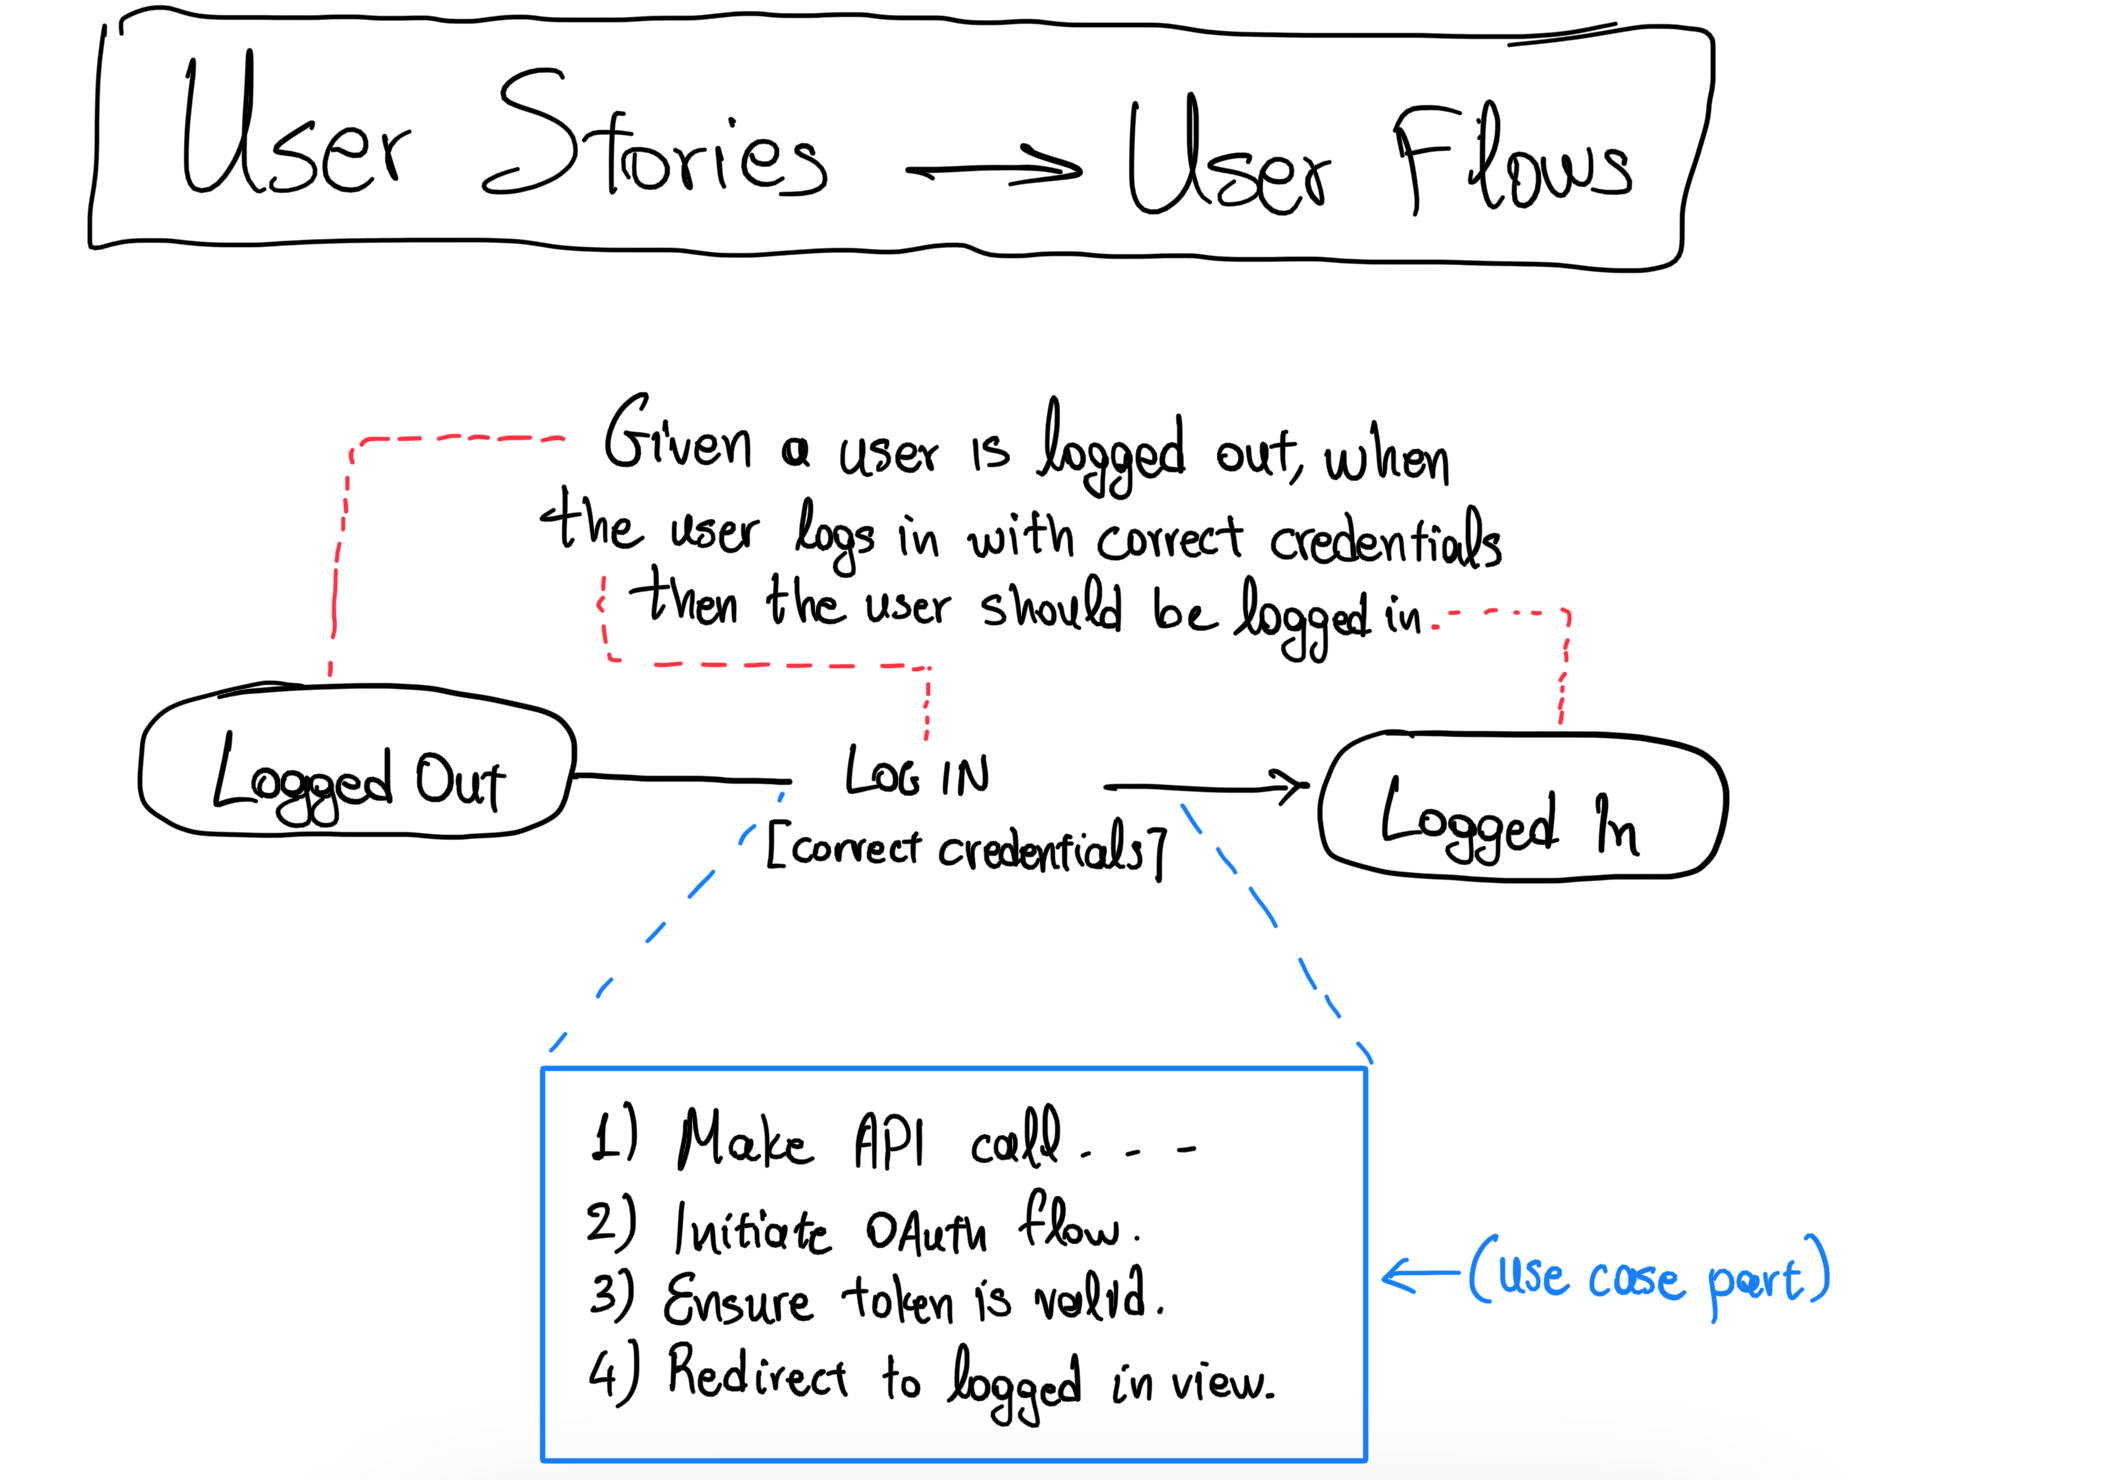 User Stories → User Flows
Given a user is logged out, when
the user logs in with correct credentials
then the user should be logged in.
Logged Out
LOG IN
[correct credentials]
Logged In
1) Make API call...
2) Initiate OAuth flow.
3) Ensure token is valid.
4) Redirect to logged in view.
(use case part)